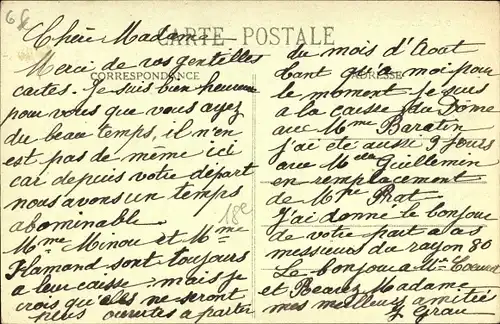 CARTE POSTALE
CORRESPONDANCE
ADRESSE
Chère Madame
Merci de vos gentilles
cartes. Je suis bien heureuse
pour vous que vous ayez
du beau temps, il n'en
est pas de même ici
car depuis votre départ
nous avons un temps
abominable.
Mme Minou et Mme
Flamand sont toujours
a leur caisse mais je
crois qu'elles ne seront
plus ouvertes a partir
du mois d'Aout
tant qu'a moi pour
le moment je suis
a la caisse du Dôme
avec Mme Baratin
j'ai été aussi 9 jours
avec Guillemen
en remplacement
de Mme Prat
J'ai donné le bonjour
de votre part a las
messieurs du rayon 80
Le bonjour a
et Madame
mes meilleurs amitiés
Grau